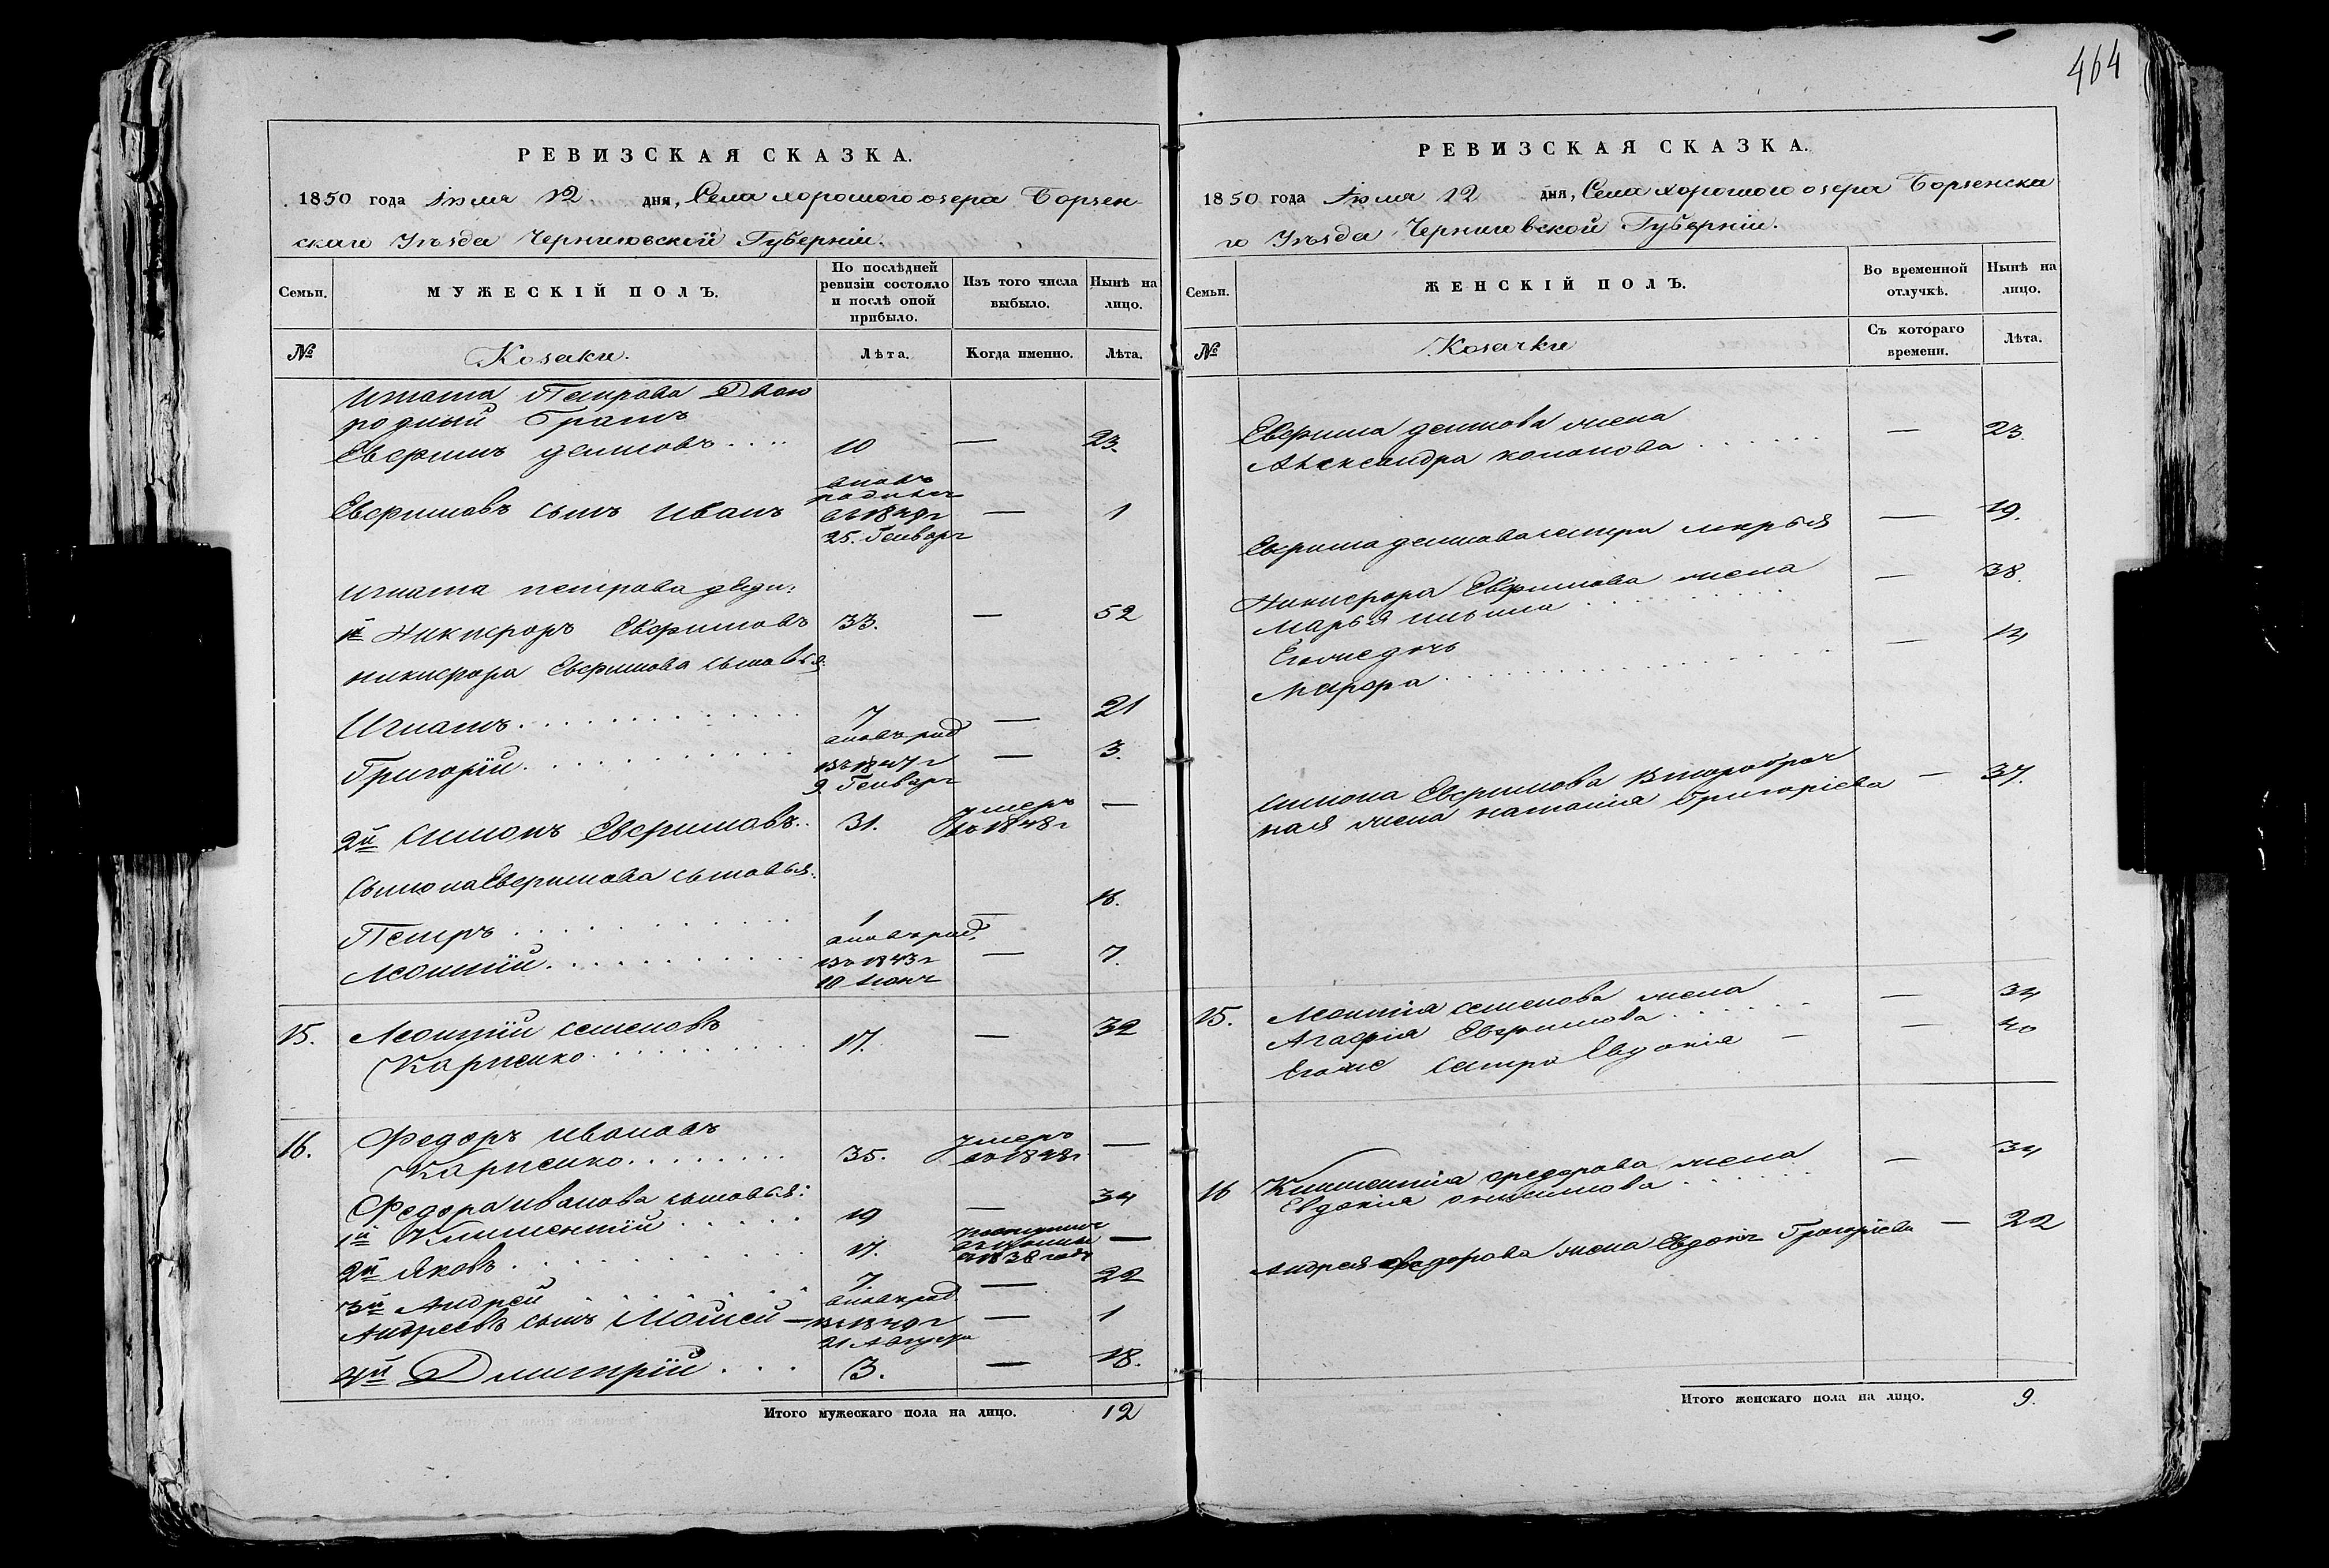 464
РЕВИЗСКАЯ СКАЗКА.
1850 года Іюля 12 дня, Села хорошого озера Борзен-
скаго Уѣзда Черниговской Губерніи.
Семьи.
МУЖЕСКІЙ ПОЛЪ.
По послѣдней ревизіи состояло и послѣ оной прибыло.
Изъ того числа выбыло.
Нынѣ на лицо.
№
Козаки.
Лѣта.
Когда именно.
Лѣта.
Игната Петрова Двою
родный братъ
Евфимъ демьовъ 10 — 23.
вновь
родился
Евфимовъ сынъ Иванъ въ 1849 г — 1
25. Генваря
Игната петрова дяди:
1й Никифоръ Евфимовъ 33. — 52
никифора Евфимова сыновья:
Игнатъ 7 — 21
вновь род
Григорій въ 1847 г — 3.
9 Генваря
2й Симонъ Евфимовъ 31. умеръ въ 1848 г —
Сымона Евфимова сыновья:
Петръ 1 — 16.
вновь род.
Леонтій въ 1843 г — 7.
10 Іюня
15. Леонтій семеновъ
Карпенко 17. — 32
16. Федоръ ивановъ
Карпенко 35. умеръ въ 1848 г —
Федора иванова сыновья:
1й Климентій 19 — 34
2й Яковъ 17. 1838 года —
3й Андрей 7. — 22
вновь род.
Андреевъ сынъ Мойсей — въ 1849 г — 1
21 Августа
4й Дмитрій 3. — 18.
Итого мужескаго пола на лицо. 12
РЕВИЗСКАЯ СКАЗКА.
1850 года Іюля 12 дня, Села хорошого озера Борзенска
го Уѣзда Черниговской Губерніи.
Семьи.
ЖЕНСКІЙ ПОЛЪ.
Во временной отлучкѣ.
Нынѣ на лицо.
№
Козачки
Съ котораго времени.
Лѣта.
Евфима демьова жена
Александра кононова — 23.
Евфима демьова сестра марья — 19.
Никифора Евфимова жена — 38.
Марья ильина
Егоже дочь — 14
Марфа
Симона Евфимова второбрач
ная жена наталія Григоріева — 37.
15. Леонтія семенова жена — 34
Агафія Евфимова
Егоже сестра Евдокія — — 40
16 Климентія федорова жена — 34
Евдокія онисимова
Андрея федорова жена Евдокія Григоріева — 22
Итого женскаго пола на лицо. 9.